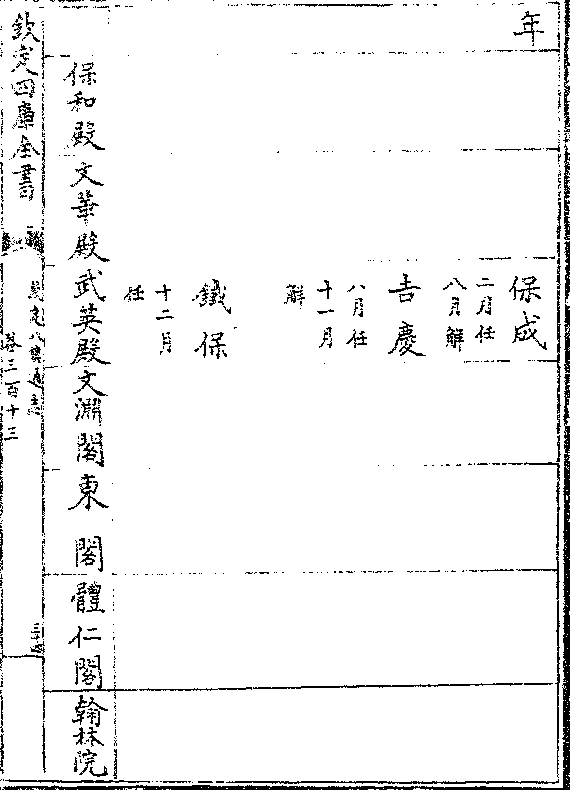 年
保成
二月任
八月解
吉慶
八月任
十一月
解
鐵保
十二月
任
保和殿文華殿武英殿文淵閣東閣體仁閣翰林院
欽定四庫全書
欽定八旗通志
卷三百十三